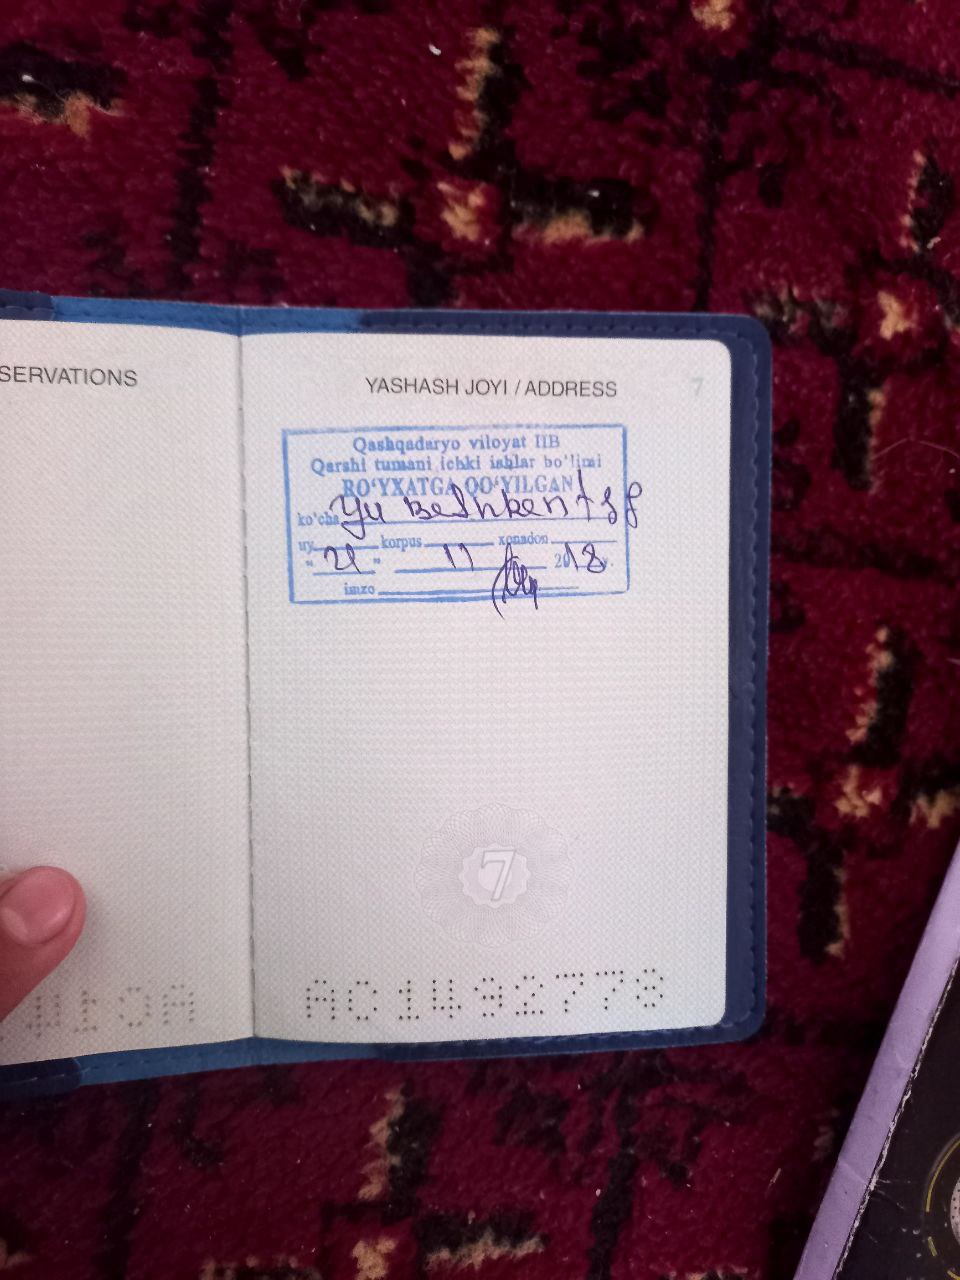 SERVATIONS
YASHASH JOYI / ADDRESS 7
Qashqadaryo viloyat IIB
Qarshi tumani ichki ishlar bo'limi
RO'YXATGA QO'YILGAN
ko'cha Yu Beshkent
uy korpus xonadon
" 21 " 11 2018 y.
imzo
7
AC1492778